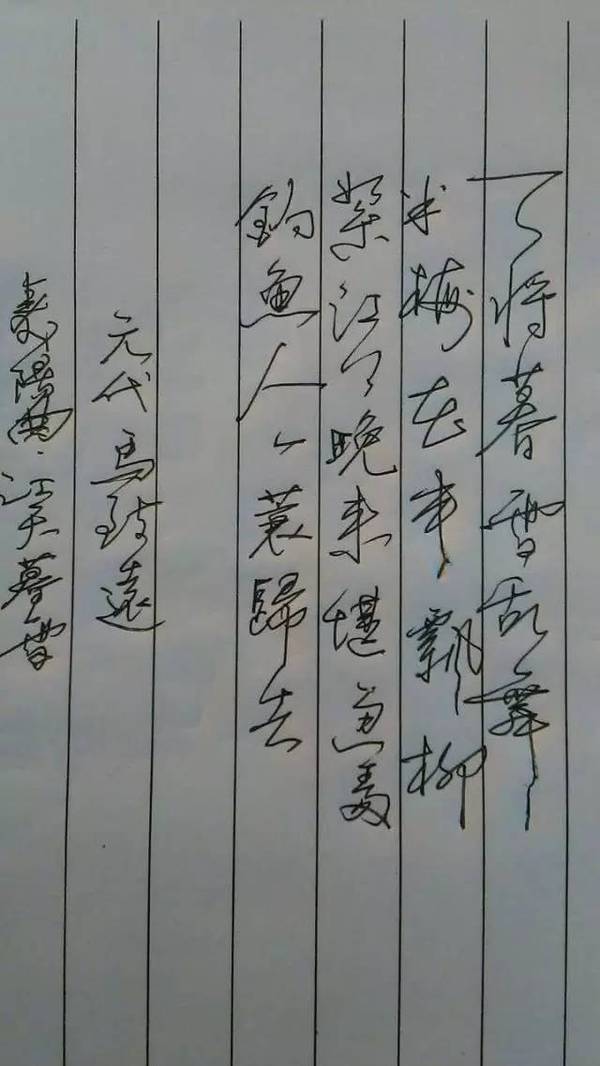 天将暮雪乱舞
半梅花半飄柳
絮江上晚来堪画處
釣魚人一蓑歸去
元代馬致遠
壽陽曲·江天暮雪